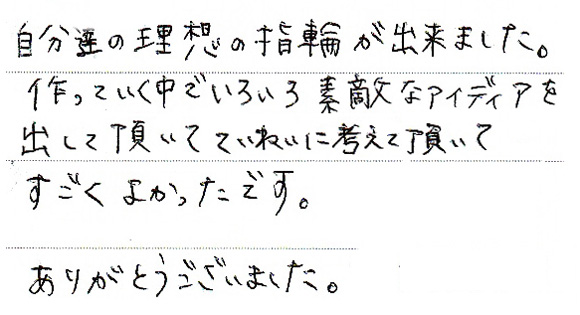 自分達の理想の指輪が出来ました。
作っていく中でいろいろ素敵なアイディアを
出して頂いてていねいに考えて頂いて
すごくよかったです。
ありがとうございました。